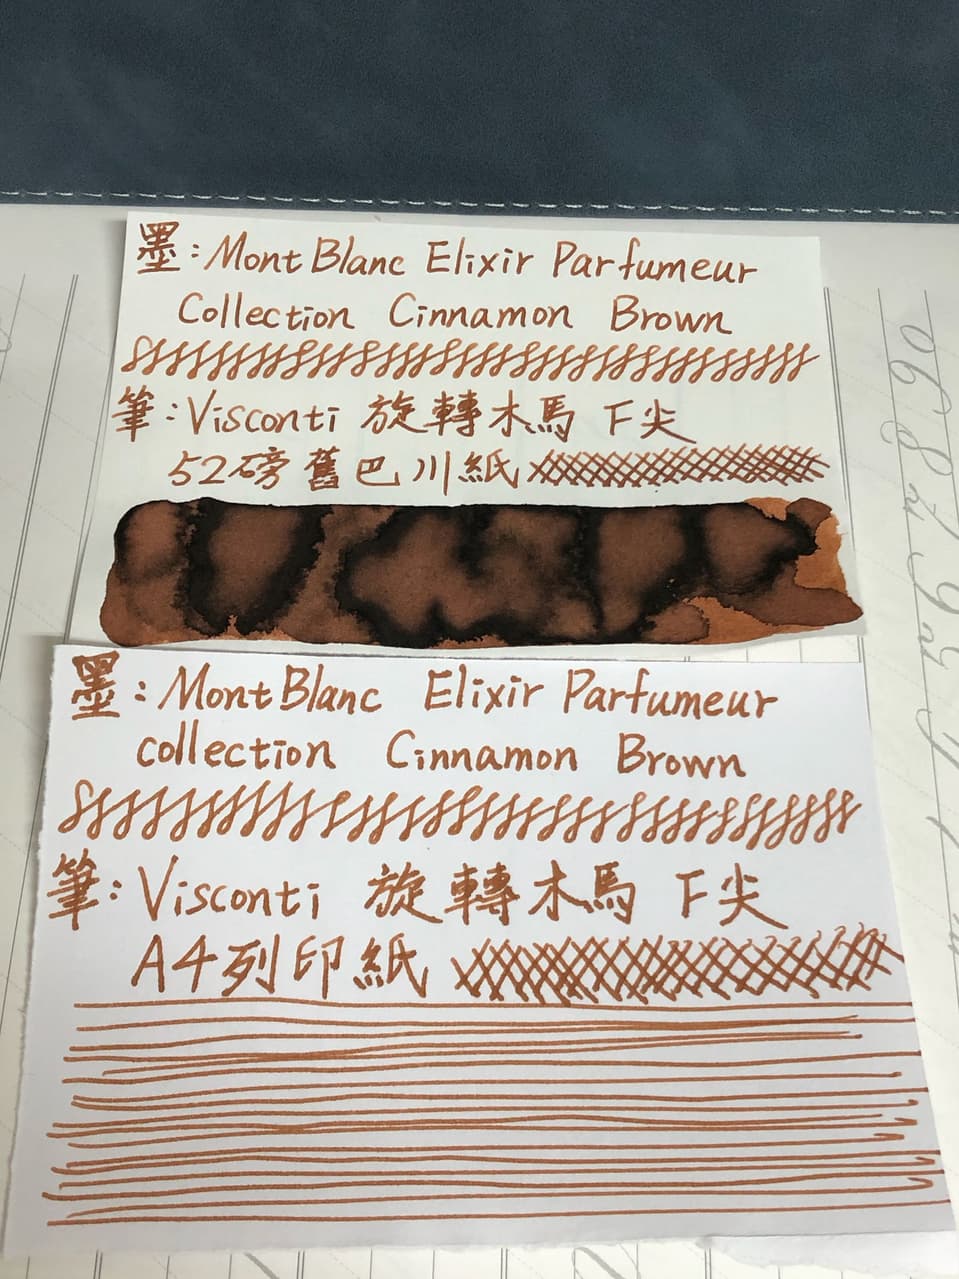 墨:MontBlanc Elixir Parfumeur
Collection Cinnamon Brown
筆:Visconti 旋轉木馬 F尖
52磅舊巴川紙
墨:MontBlanc Elixir Parfumeur
collection Cinnamon Brown
筆:Visconti 旋轉木馬 F尖
A4列印紙